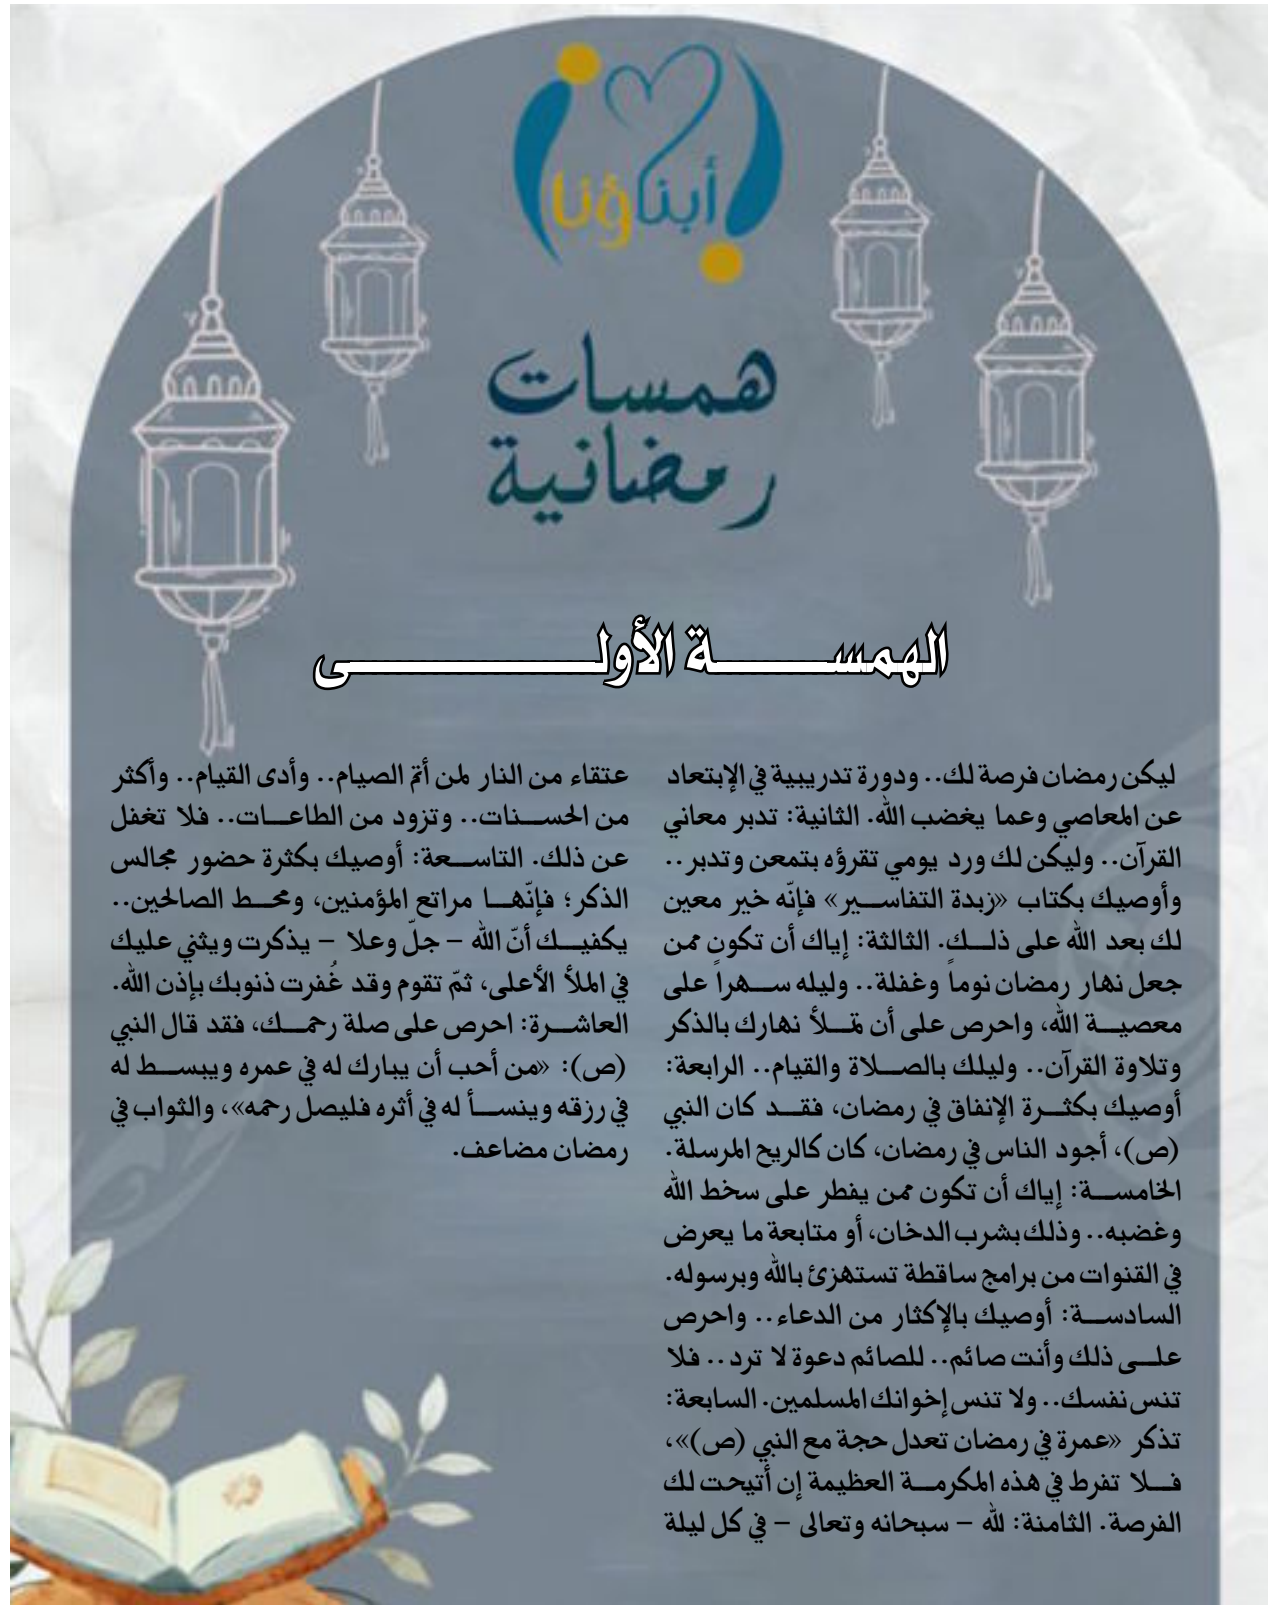 أبناؤنا
همسات
رمضانية
الهمسة الأولى
ليكن رمضان فرصة لك.. ودورة تدريبية في الإبتعاد
عن المعاصي وعما يغضب الله. الثانية: تدبر معاني
القرآن.. وليكن لك ورد يومي تقرؤه بتمعن وتدبر..
وأوصيك بكتاب «زبدة التفاسير» فإنّه خير معين
لك بعد الله على ذلك. الثالثة: إياك أن تكون ممن
جعل نهار رمضان نوماً وغفلة.. وليله سهراً على
معصية الله، واحرص على أن تملأ نهارك بالذكر
وتلاوة القرآن.. وليلك بالصلاة والقيام.. الرابعة:
أوصيك بكثرة الإنفاق في رمضان، فقد كان النبي
(ص)، أجود الناس في رمضان، كان كالريح المرسلة.
الخامسة: إياك أن تكون ممن يفطر على سخط الله
وغضبه.. وذلك بشرب الدخان، أو متابعة ما يعرض
في القنوات من برامج ساقطة تستهزئ بالله وبرسوله.
السادسة: أوصيك بالإكثار من الدعاء.. واحرص
على ذلك وأنت صائم.. للصائم دعوة لا ترد.. فلا
تنس نفسك.. ولا تنس إخوانك المسلمين. السابعة:
تذكر «عمرة في رمضان تعدل حجة مع النبي (ص)»،
فلا تفرط في هذه المكرمة العظيمة إن أتيحت لك
الفرصة. الثامنة: لله – سبحانه وتعالى – في كل ليلة
عتقاء من النار لمن أتمّ الصيام.. وأدى القيام.. وأكثر
من الحسنات.. وتزود من الطاعات.. فلا تغفل
عن ذلك. التاسعة: أوصيك بكثرة حضور مجالس
الذكر؛ فإنّها مراتع المؤمنين، ومحط الصالحين..
يكفيك أنّ الله – جلّ وعلا – يذكرت ويثني عليك
في الملأ الأعلى، ثمّ تقوم وقد غُفرت ذنوبك بإذن الله.
العاشرة: احرص على صلة رحمك، فقد قال النبي
(ص): «من أحب أن يبارك له في عمره ويبسط له
في رزقه وينسأ له في أثره فليصل رحمه»، والثواب في
رمضان مضاعف.